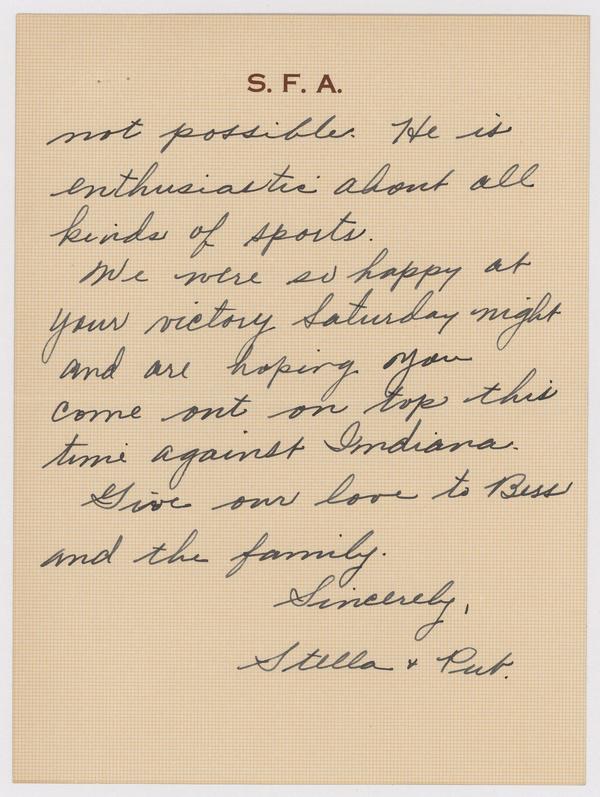 S. F. A.
not possible. He is
enthusiastic about all
kinds of sports.
We were so happy at
your victory Saturday night
and are hoping you
come out on top this
time against Indiana.
Give our love to Bess
and the family.
Sincerely,
Stella & Put.